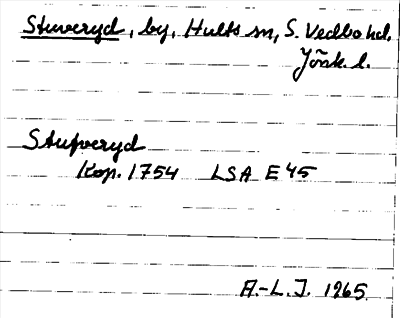 Stuveryd, by, Hults sn, S. Vedbo hd.
Jönk. l.
Stufveryd
Kop. 1754 LSA E 45
A.-L. J. 1965